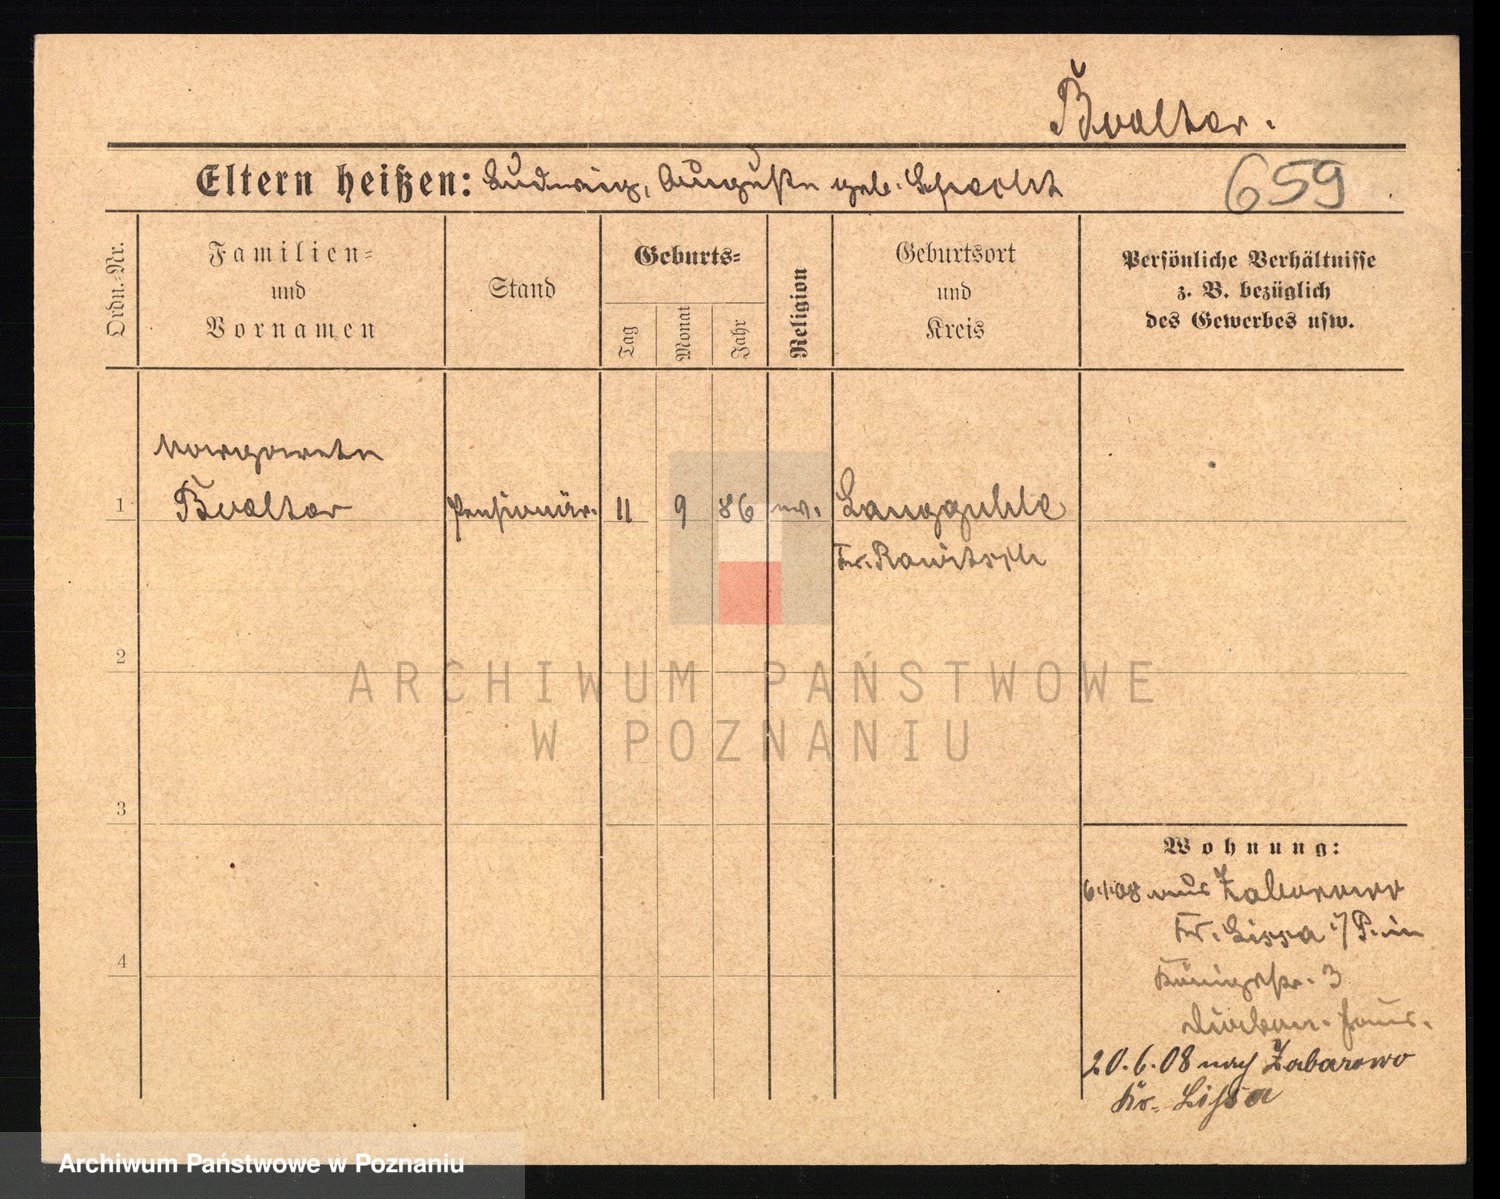 Bualter.
Eltern heißen: Ludwig, Auguste geb. Specht
659
Ordn.-Nr.
Familien- und Vornamen
Stand
Geburts-
Tag
Monat
Jahr
Religion
Geburtsort und Kreis
Persönliche Verhältnisse z. B. bezüglich des Gewerbes usw.
Margarete
1 Bualter Pensionär. 11 9 86 ev. Langguhle
Kr. Rawitsch
2
ARCHIWUM PAŃSTWOWE
W POZNANIU
3
Wohnung:
6.1.08 aus Zaborowo
Kr. Lissa i/P. in
Königstr. 3
Haus.
4
20.6.08 nach Zaborowo
Kr. Lissa
Archiwum Państwowe w Poznaniu